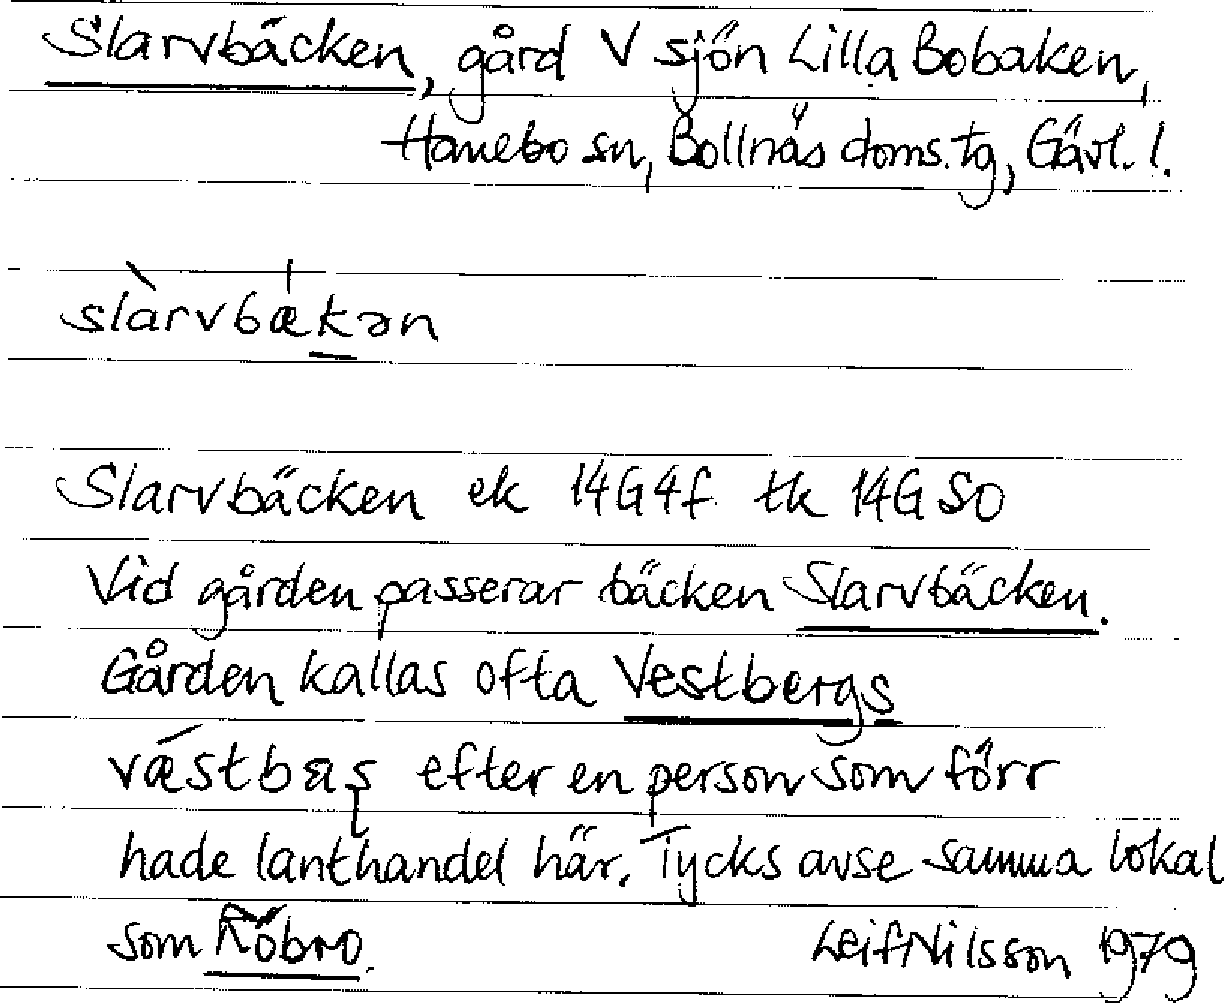 Slarvbäcken, gård V sjön Lilla Bobaken,
Hanebo sn, Bollnäs doms.tg, Gävl. l.
slàrvbækən
Slarvbäcken ek 14G4f tk 14G SO
Vid gården passerar bäcken Slarvbäcken.
Gården kallas ofta Vestbergs
efter en person som förr
hade lanthandel här. Tycks avse samma lokal
som Röbro.
Leif Nilsson 1979